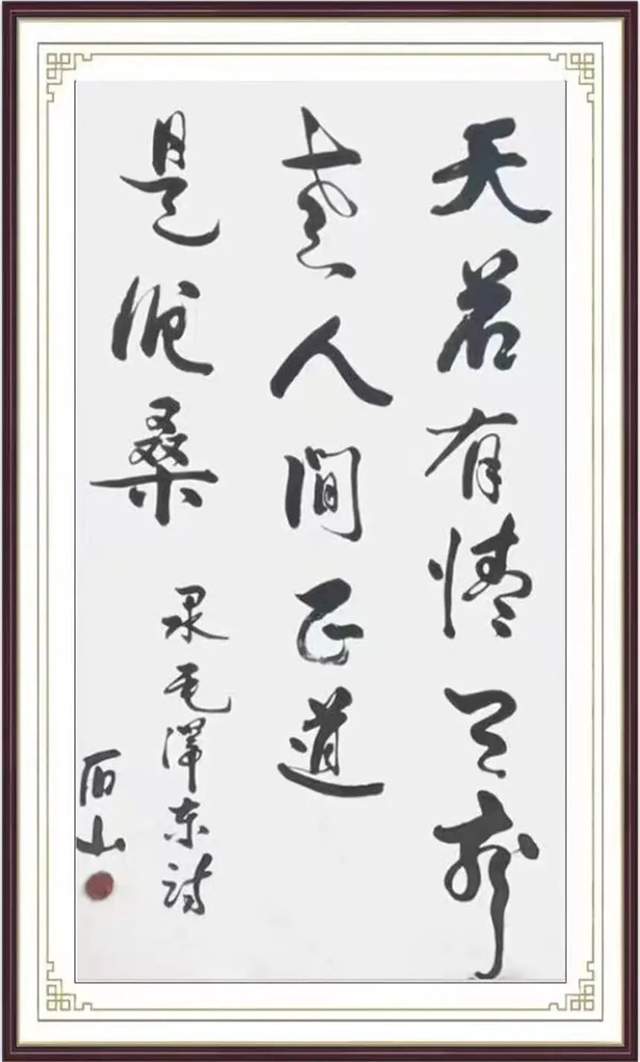 天若有情天亦
老人间正道
是沧桑
录毛澤东诗
石山